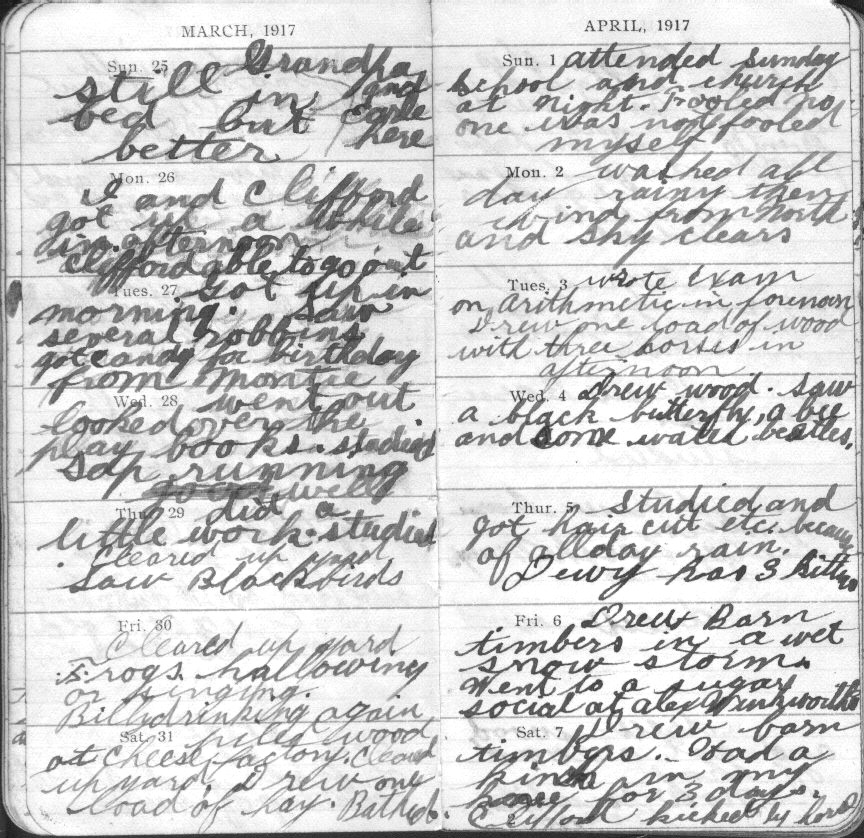 MARCH, 1917
Sun. 25 Grandpa
still in and
bed but Earle
better here
Mon. 26
I and Clifford
got up a while
in afternoon
Clifford able to go out
Tues. 27 got up in
morning. Saw
several robbins
got candy for birthday
from Montie
Wed. 28 went out
looked over the
play books. studied
Sap running
well
Thur. 29 did a
little work. studied
Cleared up yard
Saw Blackbirds
Fri. 30
Cleared up yard
Frogs hallowing
or singing.
Billy drinking again
Sat. 31 piled wood
at cheese factory. cleared
up yard. Drew one
load of hay. Bathed.
APRIL, 1917
Sun. 1 attended Sunday
School and church
at night. Fooled no
one was not fooled
myself
Mon. 2 washed all
day rainy then
wind from North
and sky clears
Tues. 3 wrote Exam
on Arithmetic in forenoon
Drew one load of wood
with three horses in
afternoon
Wed. 4 Drew wood. Saw
a black butterfly, a bee
and some water beatles.
Thur. 5 Studied and
got hair cut etc. because
of all day rain.
Dewy has 3 kittens
Fri. 6 Drew Barn
timbers in a wet
snow storm.
Went to a sugar
social at Alex
Sat. 7 Drew barn
timbers. Had a
kink in my
knee for 3 days.
Clifford kicked by horse